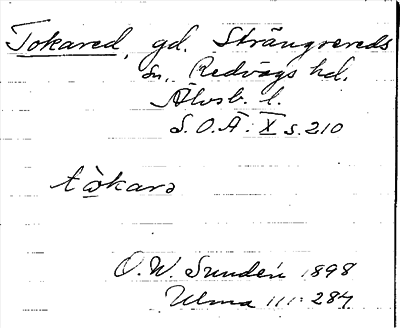 Tokared, gd. Strängsereds
sn., Redvägs hd.
Älvsb. l.
S.O.Ä. X s. 210
tòkarə
O. W. Sundén 1898
Ulma 111:284